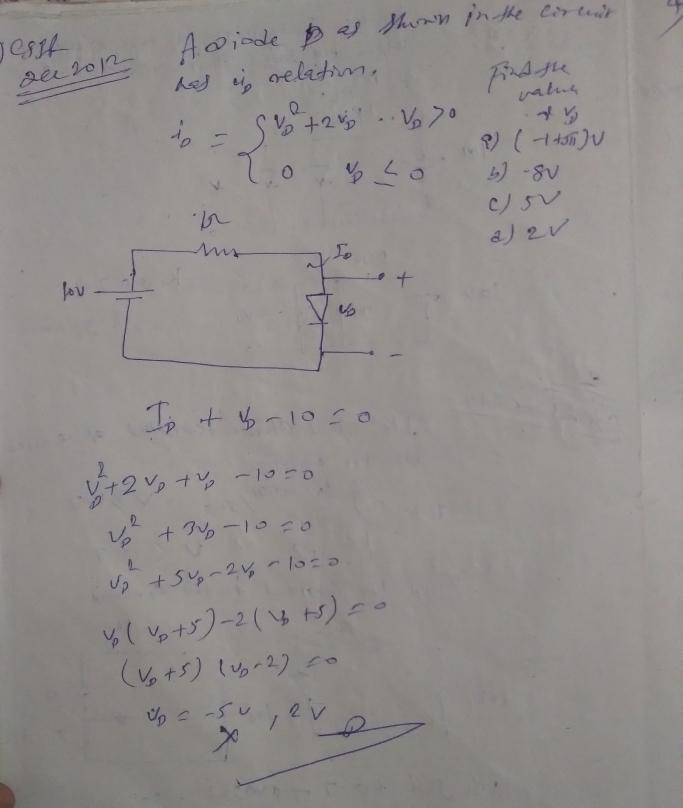 CSIR
Dec 2012
A diode D as shown in the circuit
has i_D relation.
Find the
value
of V_D
i_D = { V_D² + 2V_D .. V_D > 0
0 V_D ≤ 0
a) (-1+√11)V
b) -8V
c) 5V
d) 2V
1Ω
I_D
10V
+
V_D
-
I_D + V_D - 10 = 0
V_D² + 2V_D + V_D - 10 = 0
V_D² + 3V_D - 10 = 0
V_D² + 5V_D - 2V_D - 10 = 0
V_D(V_D+5) - 2(V_D+5) = 0
(V_D+5) (V_D-2) = 0
V_D = -5V, 2V
X